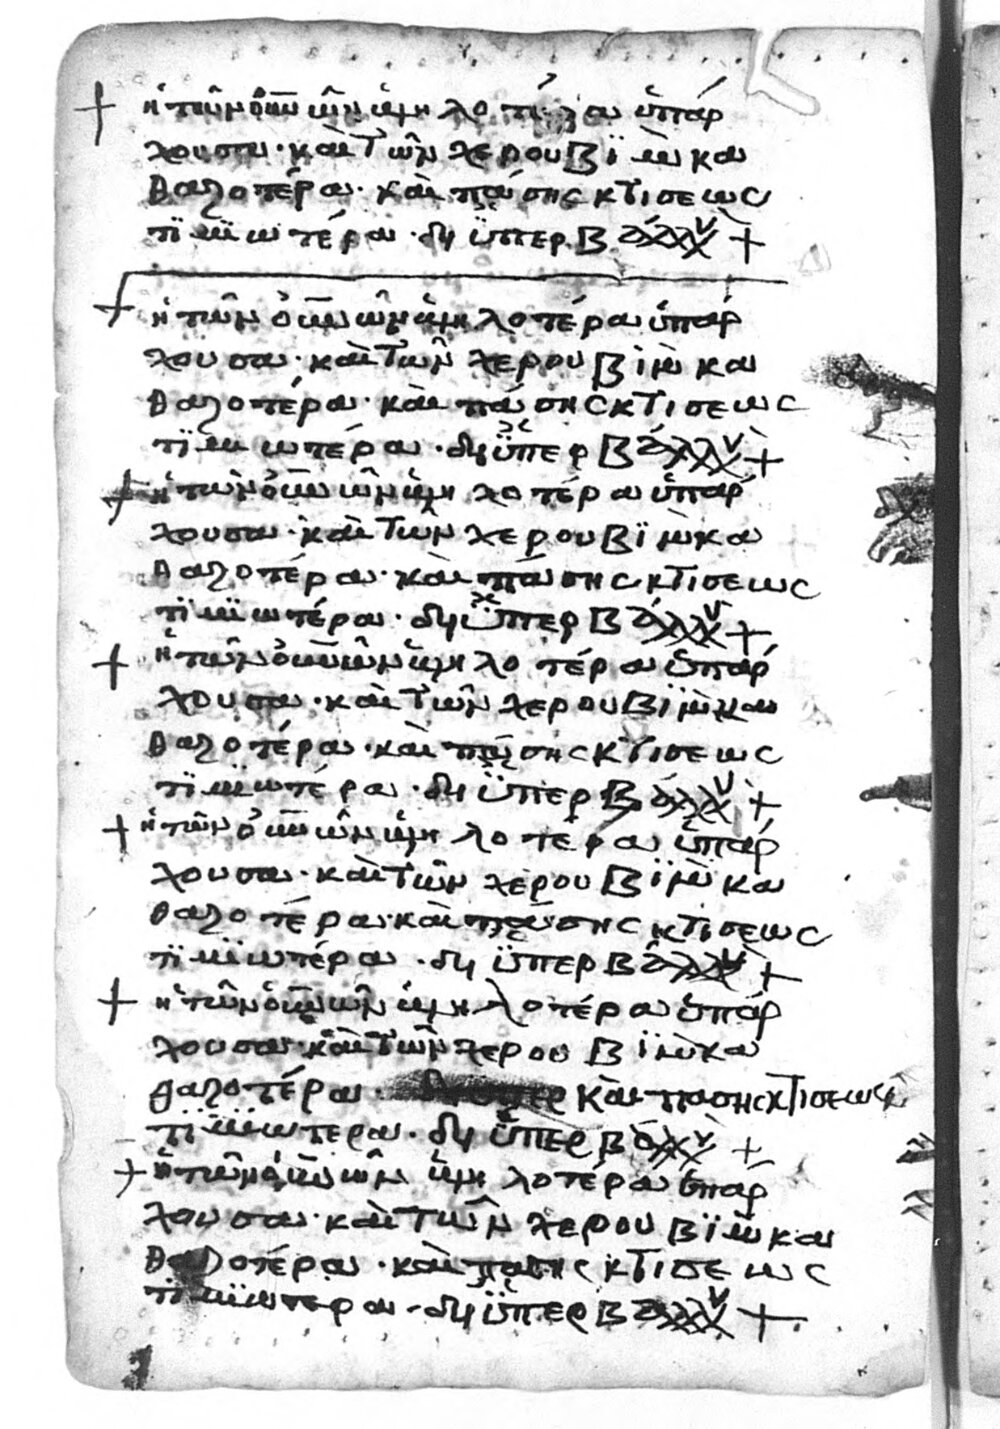 + ἡ τῶν οὐνῶν ὑψηλοτέρα ὑπάρ
χουσα· καὶ τῶν χερουβϊμ κα
θαροτέρα· καὶ πάσης κτίσεως
τϊμϊωτέρα· δι ὑπερβάλλ +
+ ἡ τῶν οὐνῶν ὑψηλοτέρα ὑπάρ
χουσα· καὶ τῶν χερουβιμ κα
θαροτέρα· καὶ πάσης κτισεως
τϊμιωτέρα· δι ὑπερβάλλ +
+ ἡ τῶν οὐνῶν ὑψηλοτέρα ὑπάρ
χουσα· καὶ τῶν χερουβϊμ κα
θαροτέρα· καὶ πάσης κτισεως
τϊμϊωτέρα· δι ὑπερβάλλ +
+ ἡ τῶν οὐνῶν ὑψηλοτέρα ὑπάρ
χουσα· καὶ τῶν χερουβϊμ κα
θαροτέρα· καὶ πάσης κτισεως
τϊμϊωτέρα· δι ὑπερβάλλ +
+ ἡ τῶν οὐνῶν ὑψηλοτέρα ὑπάρ
χουσα· καὶ τῶν χερουβϊμ κα
θαροτέρα· καὶ πάσης κτισεως
τϊμϊωτέρα· δι ὑπερβάλλ +
+ ἡ τῶν οὐνῶν ὑψηλοτέρα ὑπάρ
χουσα· καὶ τῶν χερουβϊμ κα
θαροτέρα· καὶ πασης κτισεως
τϊμϊωτερα· δι ὑπερβάλλ +
+ ἡ τῶν οὐνῶν ὑψηλοτέρα ὑπάρ
χουσα· καὶ τῶν χερουβϊμ κα
θαροτέρα· καὶ πασης κτισεως
τϊμϊωτερα· δι ὑπερβάλλ +